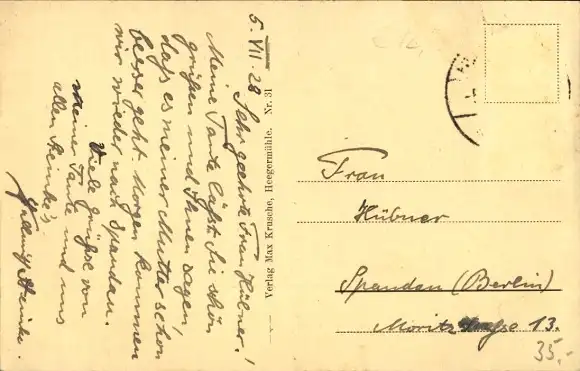 5. VII. 28
Sehr geehrte Frau Hübner!
Meine Tante läßt Sie schön
grüßen und Ihnen sagen,
daß es meiner Mutter schon
besser geht. Morgen kommen
wir wieder nach Spandau.
Viele Grüße von
meiner Tante und uns
allen
Verlag Max Krusche, Heegermühle. Nr. 31
Frau
Hübner
Spandau (Berlin)
Moritz Straße 13.
35,-